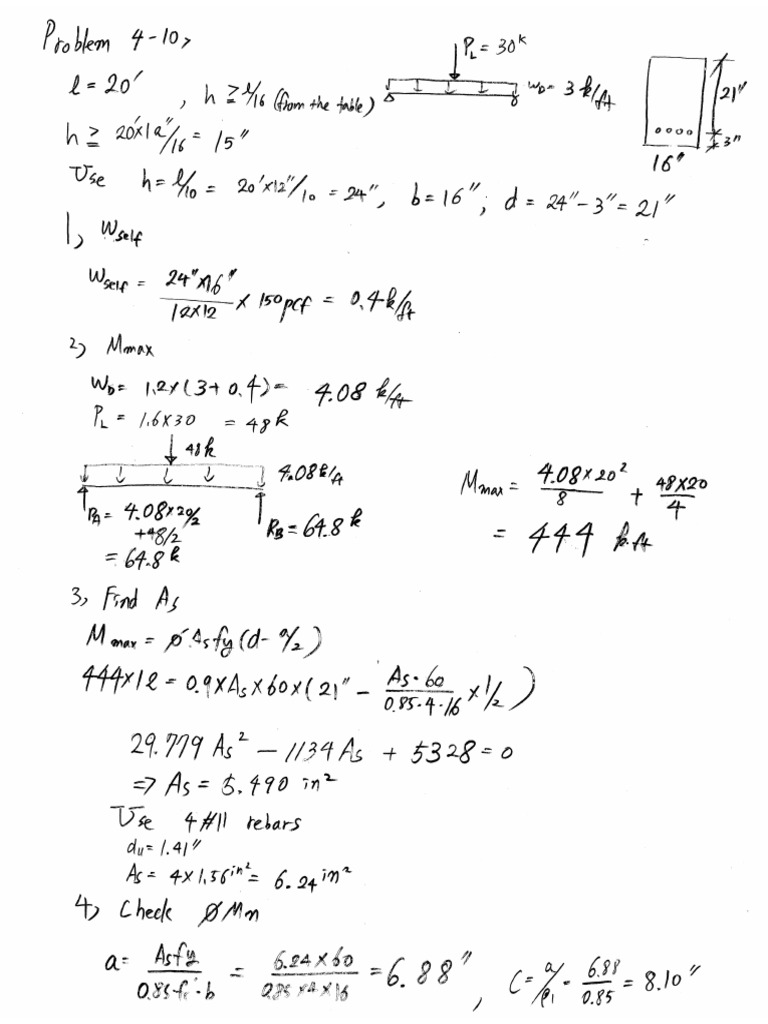 Problem 4-10>
l = 20' , h ≥ l/16 (from the table)
P_L = 30^k
W_D = 3 k/ft
21"
3"
16"
h ≥ 20'x12"/16 = 15"
Use h = l/10 = 20'x12"/10 = 24", b = 16"; d = 24"-3" = 21"
1, W_self
W_self = 24"x16"/12x12 x 150pcf = 0.4k/ft
2) Mmax
W_D = 1.2x(3+0.4) = 4.08 k/ft
P_L = 1.6x30 = 48k
48k
4.08k/ft
R_A = 4.08x20/2
+48/2
= 64.8 k
R_B = 64.8 k
M_max = 4.08x20²/8 + 48x20/4
= 444 k.ft
3, Find As
M_max = φ·Asfy(d-a/2)
444x12 = 0.9xAsx60x(21" - As·60/0.85·4·16 x 1/2)
29.779 As² - 1134 As + 5328 = 0
=> As = 5.490 in²
Use 4#11 rebars
d_b = 1.41"
As = 4x1.56in² = 6.24in²
4) Check φMn
a = Asfy/0.85fc'·b = 6.24x60/0.85x4x16 = 6.88" , C = a/β1 = 6.88/0.85 = 8.10"